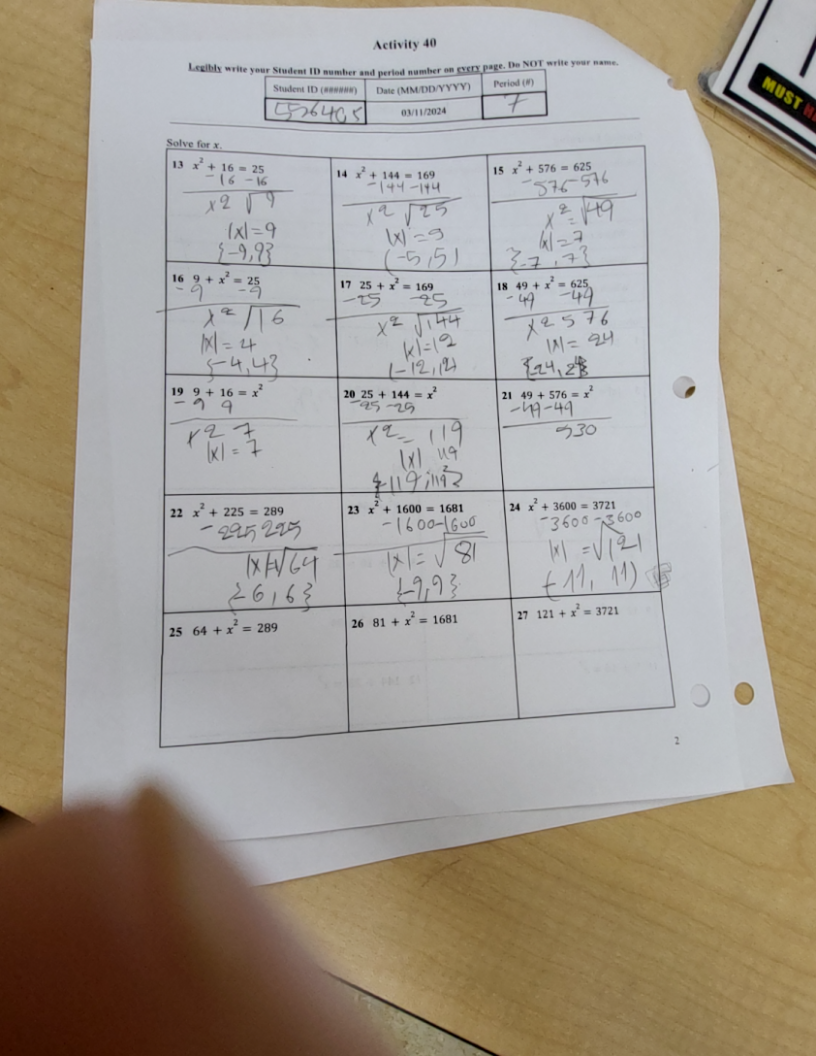 Activity 40
Legibly write your Student ID number and period number on every page. Do NOT write your name.
Student ID (######) Date (MM/DD/YYYY) Period (#)
03/11/2024 7
MUST
Solve for x.
13 x² + 16 = 25
-16 -16
x2 √9
|x|=9
{-9,9}
14 x² + 144 = 169
-144 -144
x2 √25
|x|=5
(-5,5)
15 x² + 576 = 625
-576-576
x²=√49
|x|=7
{-7,7}
16 9 + x² = 25
-9 -9
x2 √16
|x|=4
{-4,4}
17 25 + x² = 169
-25 -25
x2 √144
|x|=12
(-12,12)
18 49 + x² = 625
-49 -49
x2 576
|x|= 24
19 9 + 16 = x²
-9 9
x2 7
|x| = 7
20 25 + 144 = x²
-25 -25
x2= 119
|x| 119
21 49 + 576 = x²
-49-49
530
22 x² + 225 = 289
-225 225
|x|=√64
{-6,6}
23 x² + 1600 = 1681
-1600-1600
|x|=√81
{-9,9}
24 x² + 3600 = 3721
-3600-3600
|x| =√121
(-11, 11)
25 64 + x² = 289
26 81 + x² = 1681
27 121 + x² = 3721
2